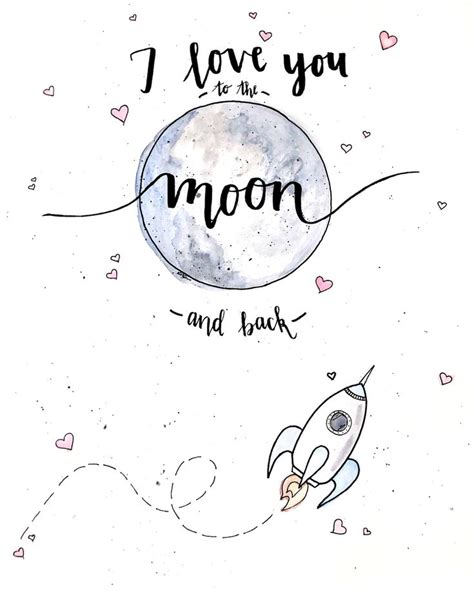 I love you
- to the -
moon
- and back -